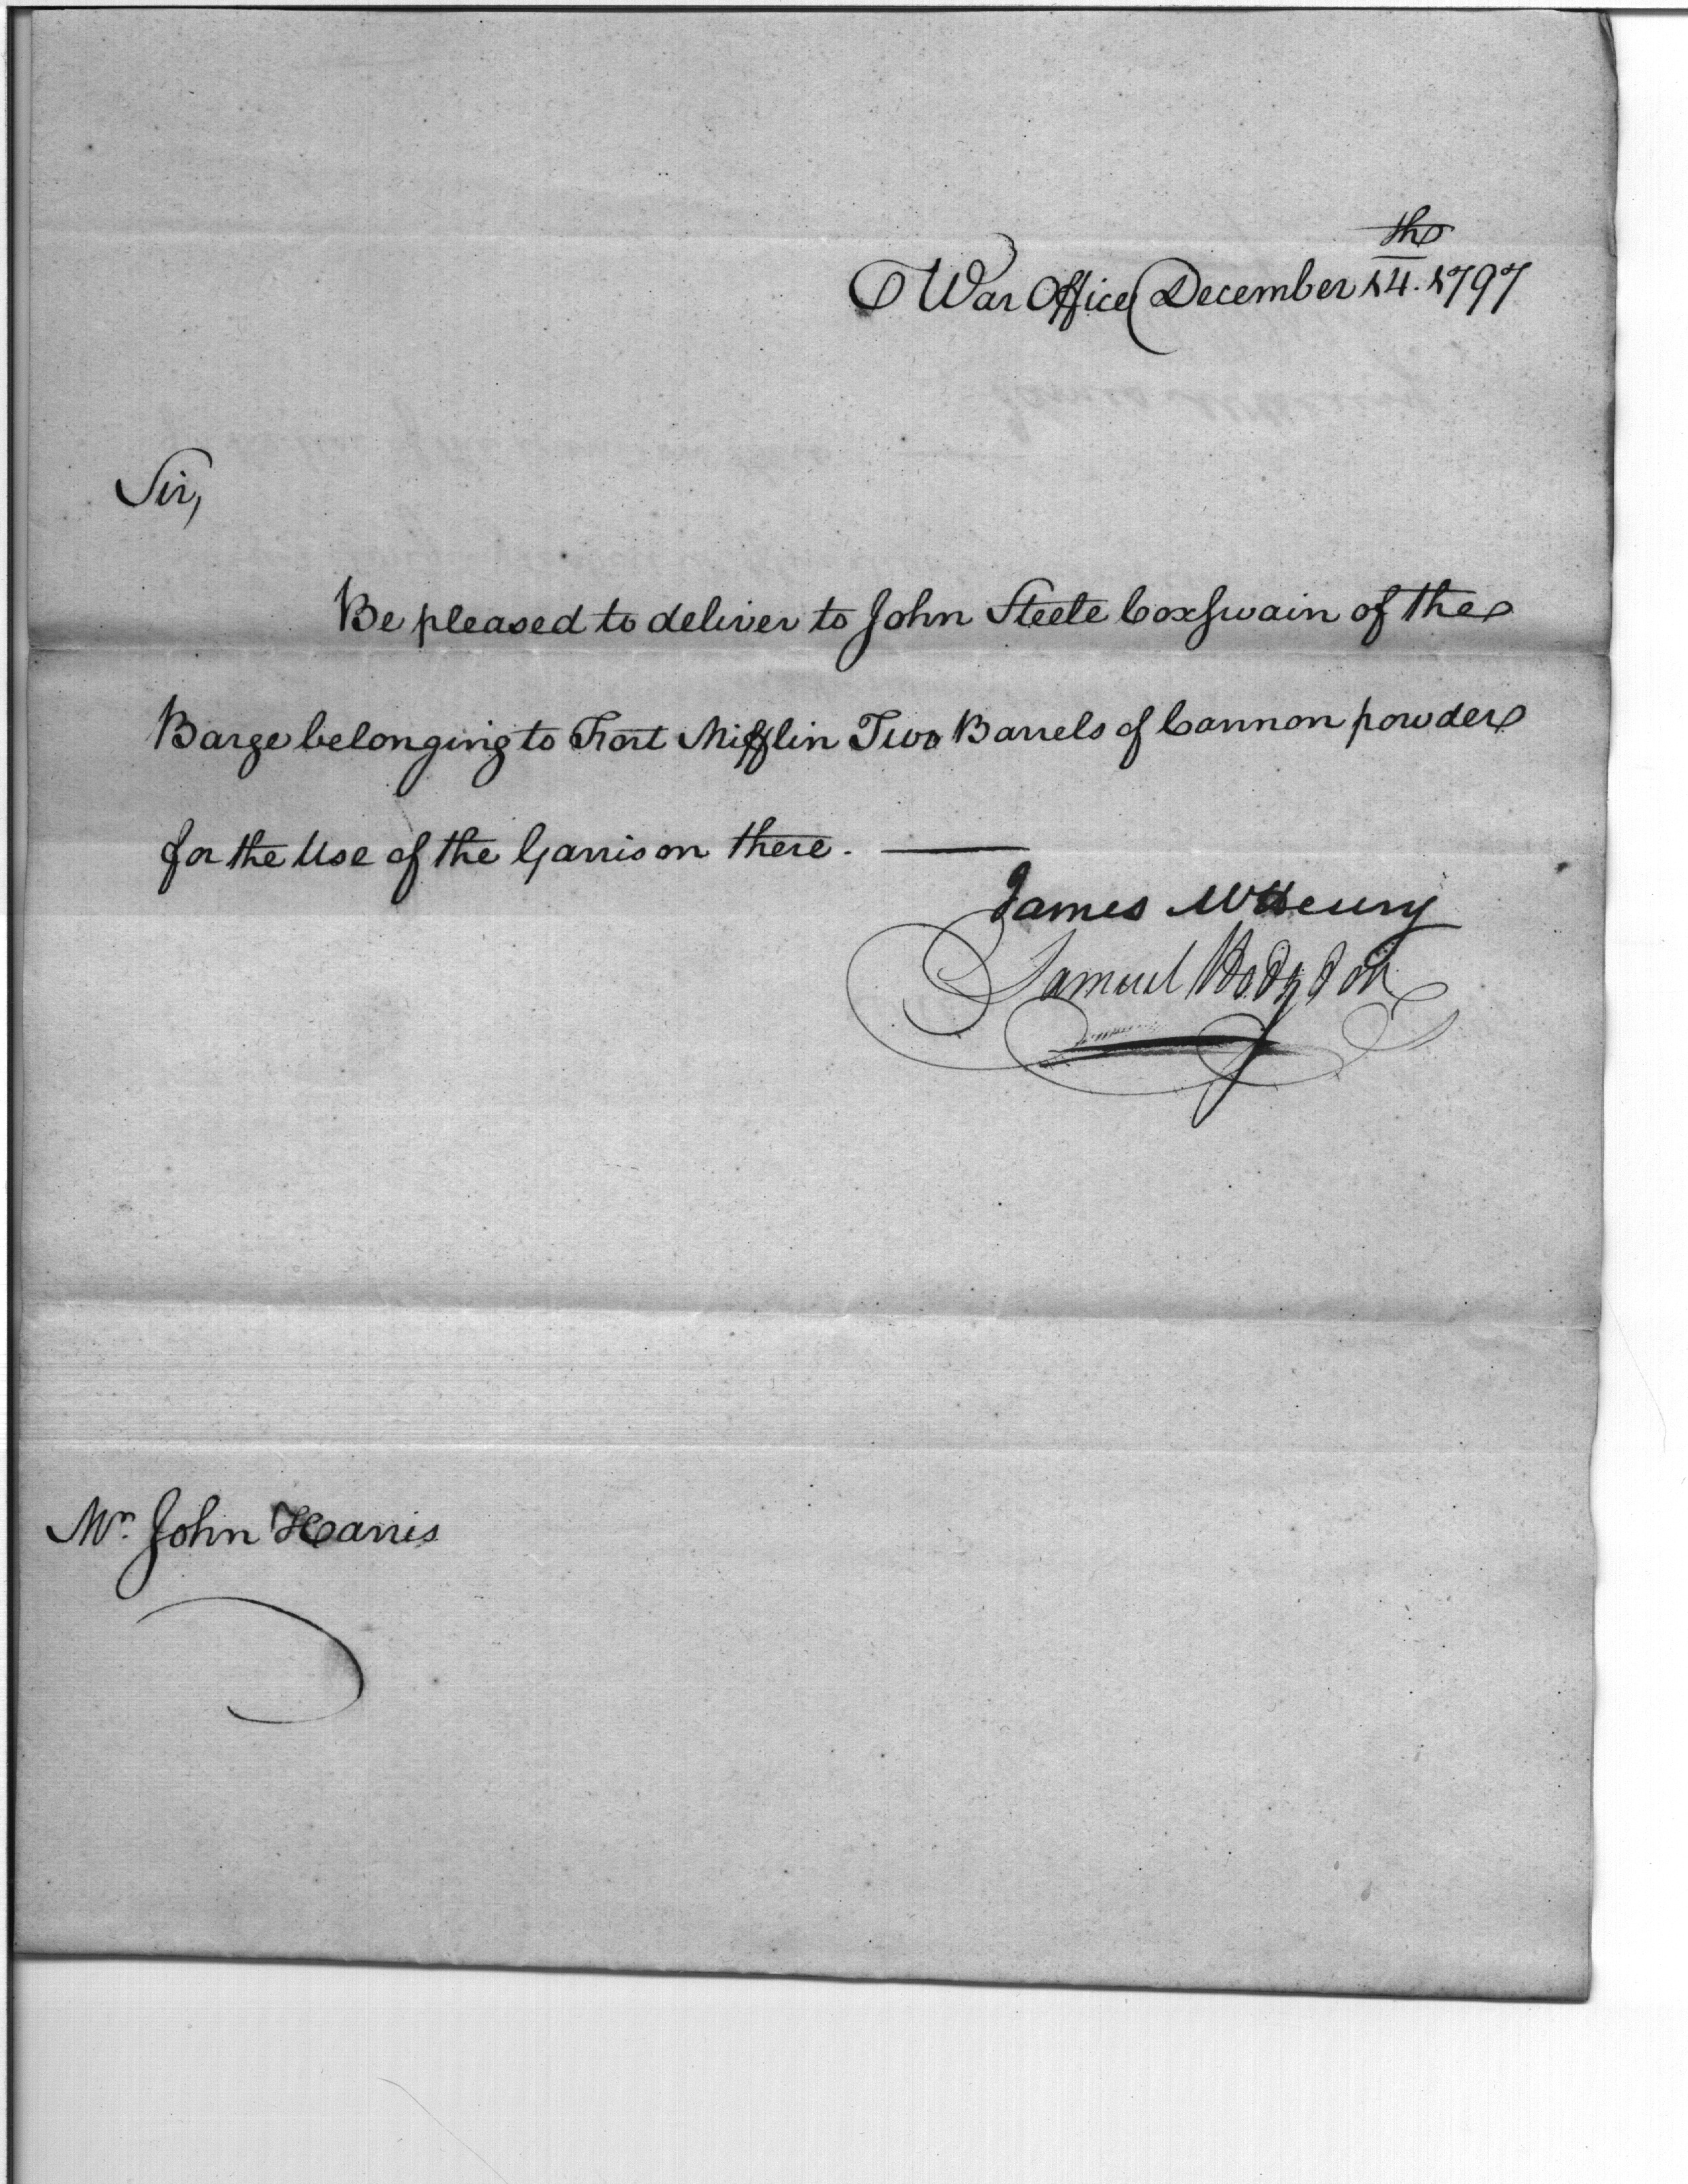 War Office December 14th. 1797
Sir,
Be pleased to deliver to John Steele Coxswain of the
Barge belonging to Fort Mifflin Two Barrels of Cannon powder
for the Use of the Garrison there. —
James McHenry
Samuel Hodgdon
Mr. John Harris